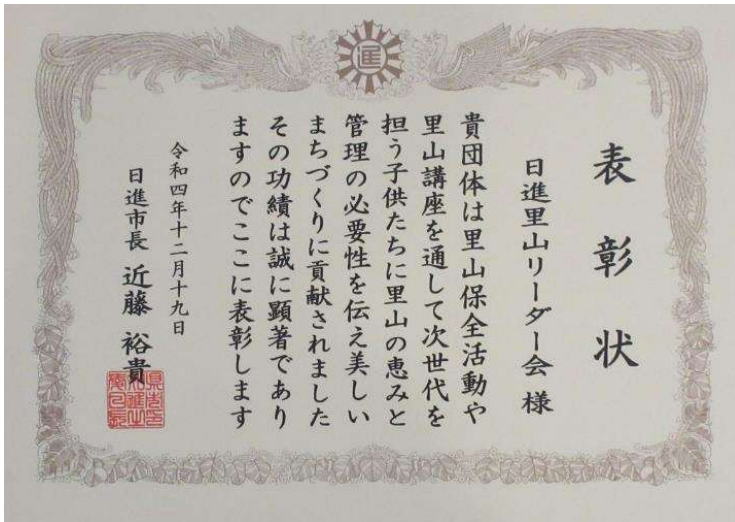 進
表彰状
日進里山リーダー会 様
貴団体は里山保全活動や
里山講座を通して次世代を
担う子供たちに里山の恵みと
管理の必要性を伝え美しい
まちづくりに貢献されました
その功績は誠に顕著であり
ますのでここに表彰します
令和四年十二月十九日
日進市長 近藤 裕貴